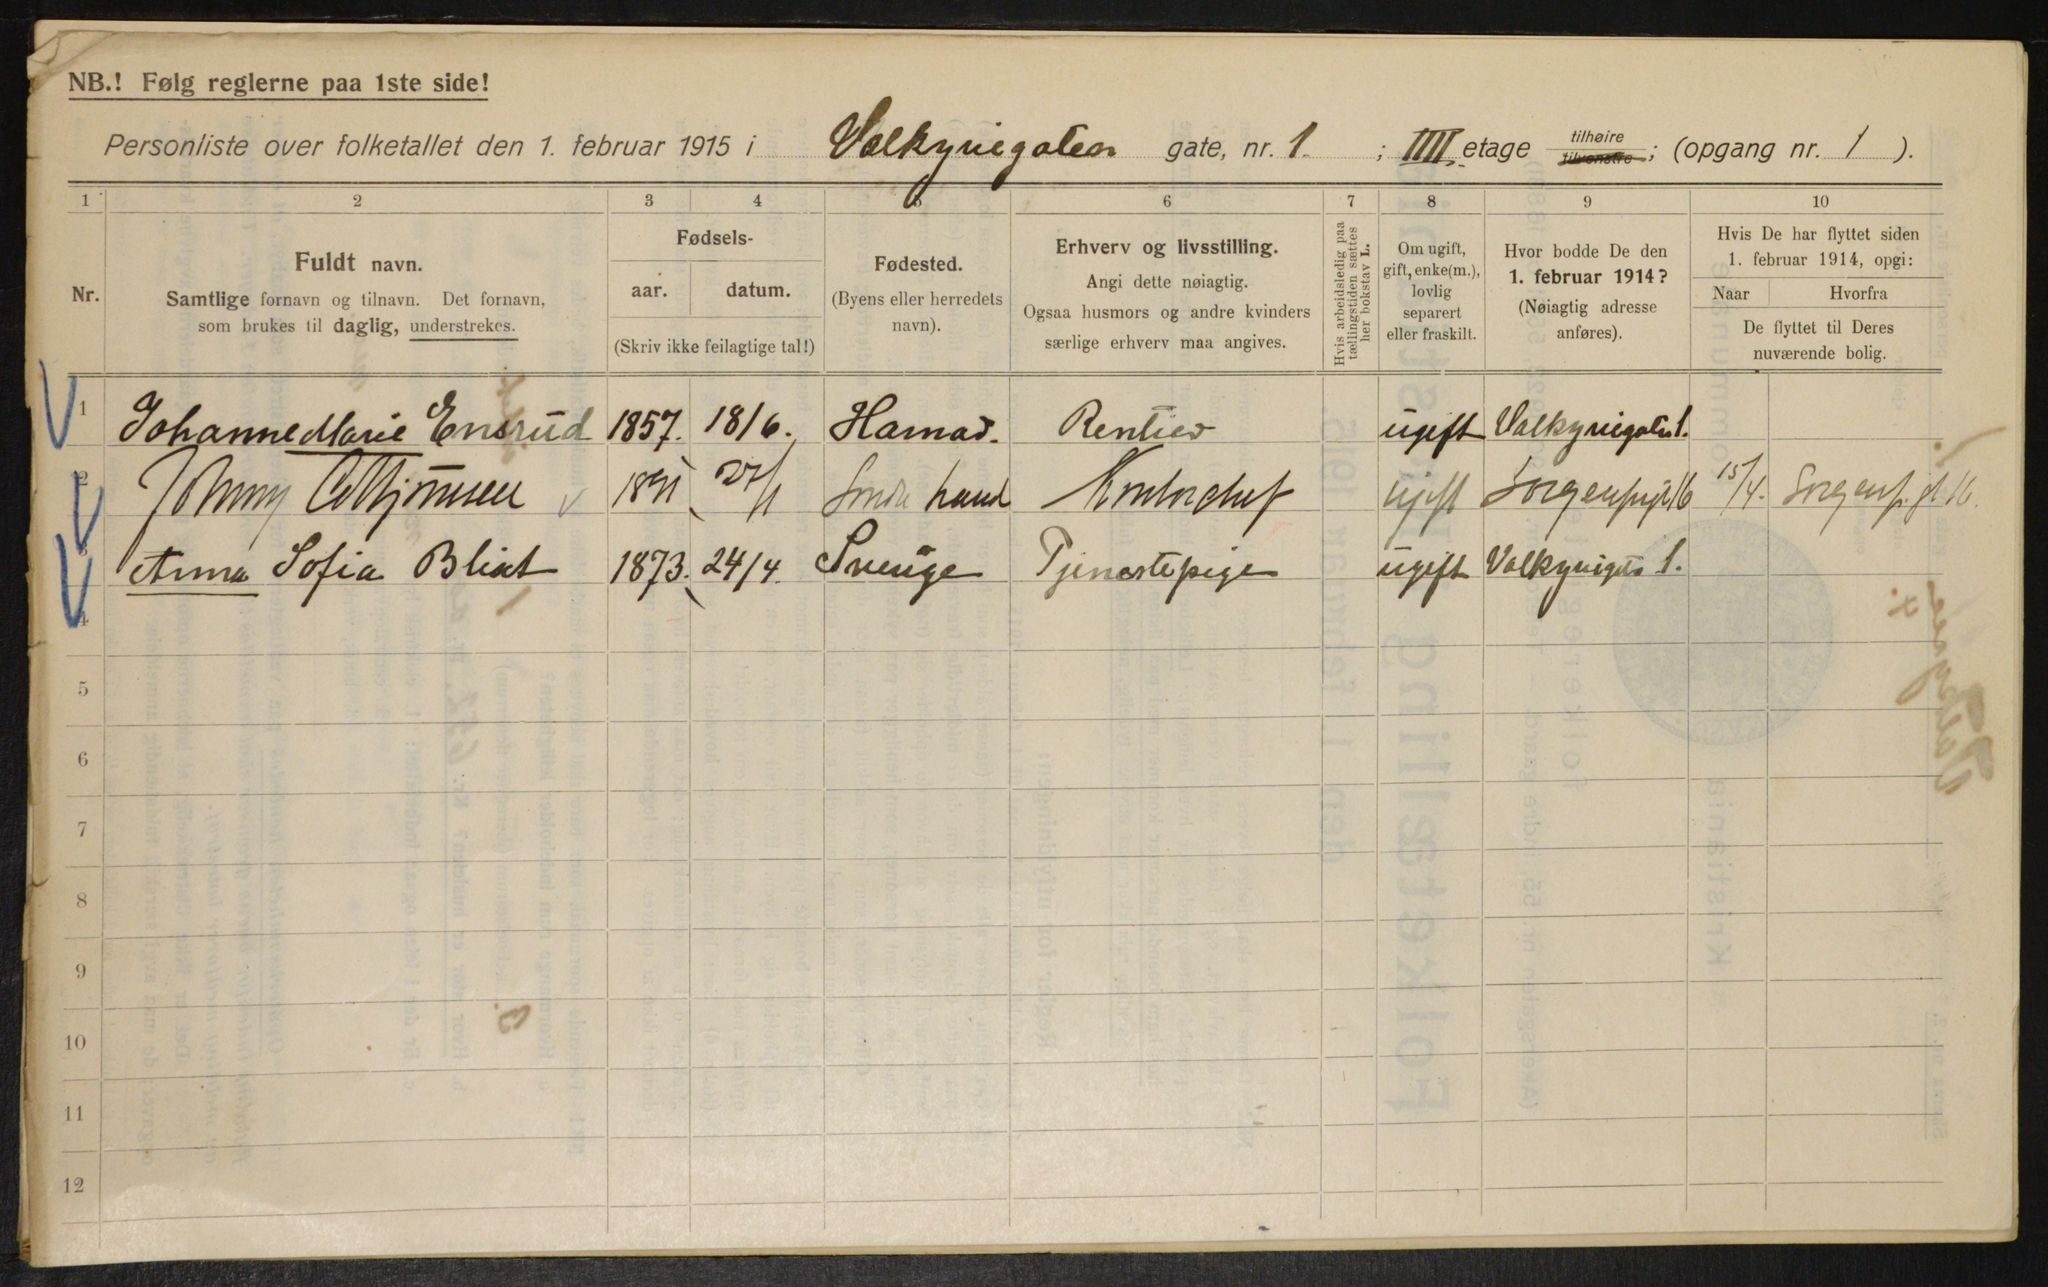 NB.! Følg reglerne paa 1ste side!
Personliste over folketallet den 1. februar 1915 i Valkyriegaten gate, nr. 1. ; IIII etage tilhøire tilvenstre ; (opgang nr. 1 ).
1 2 3 4 5 6 7 8 9 10
Nr.
Fuldt navn.
Samtlige fornavn og tilnavn. Det fornavn,
som brukes til daglig, understrekes.
Fødsels-
aar. datum.
(Skriv ikke feilagtige tal!)
Fødested.
(Byens eller herredets
navn).
Erhverv og livsstilling.
Angi dette nøiagtig.
Ogsaa husmors og andre kvinders
særlige erhverv maa angives.
Hvis arbeidsledig paa
tællingstiden sættes
her bokstav L.
Om ugift,
gift, enke(m.),
lovlig
separert
eller fraskilt.
Hvor bodde De den
1. februar 1914?
(Nøiagtig adresse
anføres).
Hvis De har flyttet siden
1. februar 1914, opgi:
Naar Hvorfra
De flyttet til Deres
nuværende bolig.
1 Johanne Marie Ensrud 1857. 18/6. Hamar. Rentier ugift Valkyriegaten 1.
2 Johnny 1891 27/1 Kontorchef ugift 16 15/4. 16.
3 Anna Sofia Blixt 1873. 24/4. Sverige Tjenestepige ugift 1.
4
5
6
7
8
9
10
11
12